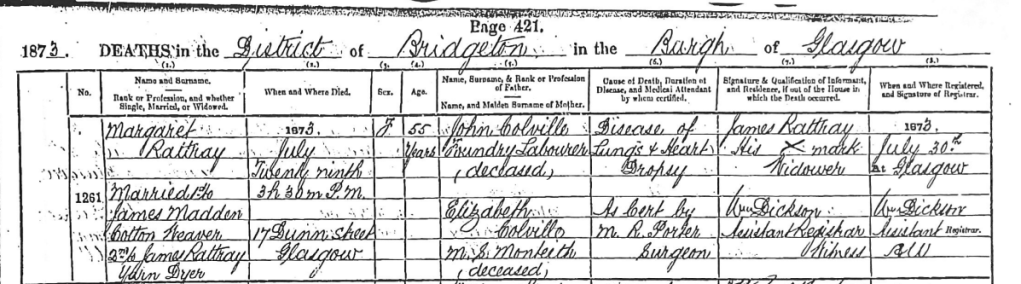 Page 421.
1873. DEATHS in the District of Bridgeton in the Burgh of Glasgow
(1.) (2.) (3.) (4.) (5.) (6.) (7.) (8.)
No.
Name and Surname.
Rank or Profession, and whether
Single, Married, or Widowed.
When and Where Died.
Sex.
Age.
Name, Surname, & Rank or Profession
of Father.
Name, and Maiden Surname of Mother.
Cause of Death, Duration of
Disease, and Medical Attendant
by whom certified.
Signature & Qualification of Informant,
and Residence, if out of the House in
which the Death occurred.
When and Where Registered,
and Signature of Registrar.
1261
Margaret
Rattray
Married 1st to
James Madden
Cotton Weaver
James Rattray
Yarn Dyer
1873.
July
Twenty ninth
3h 30m P.M.
17 Dunn Street
Glasgow
F
55
Years
John Colville
Foundry Labourer
(deceased)
Elizabeth
Colville
M. S. Monteith
(deceased)
Disease of
Lungs & Heart
Dropsy
As Cert by
M. R. Porter
Surgeon
James Rattray
His X mark
Widower
Wm Dickson
Assistant Registrar
Witness
1873.
July 30th
at Glasgow
Wm Dickson
Assistant Registrar.